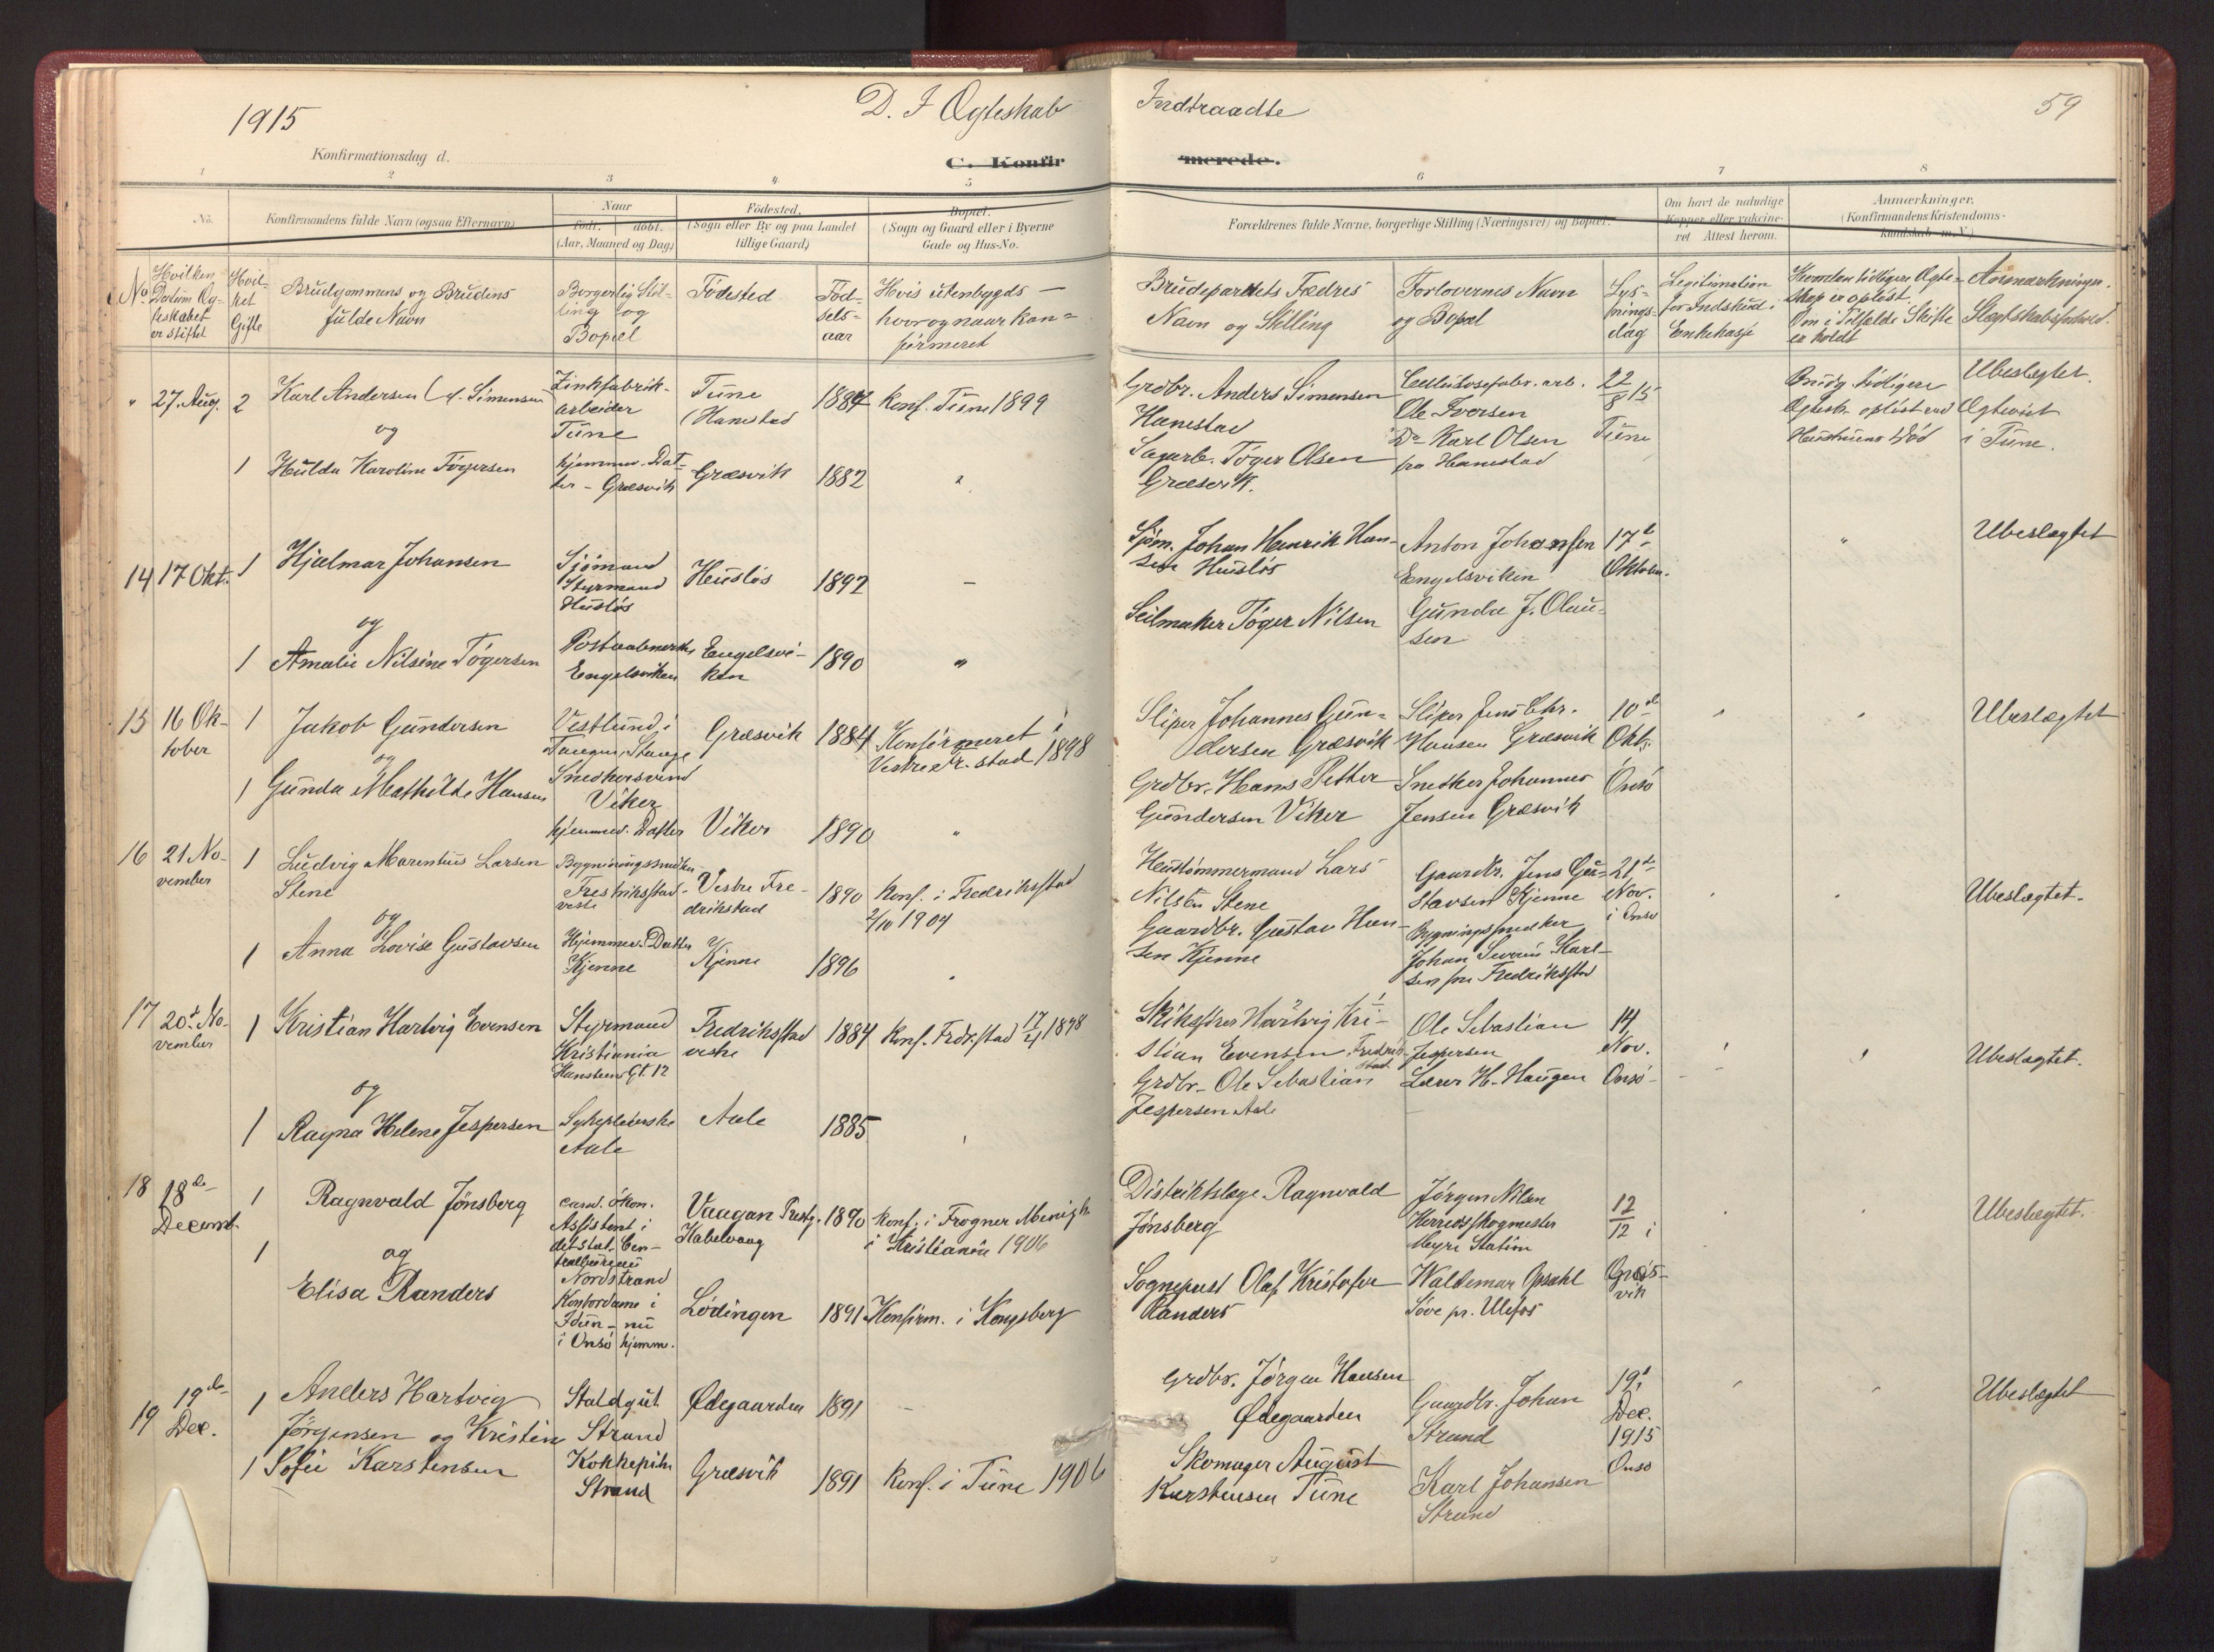 1915
D. I Ægteskab
Indtraadte
59
Konfirmationsdag d.
C. Konfir
merede.
1 2 3 4 5 6 7 8
No.
Konfirmandens fulde Navn (ogsaa Efternavn)
Naar
født. døbt.
(Aar, Maaned og Dag)
Fødested.
(Sogn eller By og paa Landet
tillige Gaard)
Bopæl.
(Sogn og Gaard eller i Byerne
Gade og Hus-No.
Forældrenes fulde Navne, borgerlige Stilling (Næringsvei) og Bopæl.
Om havt de naturlige
Kopper eller vaccine-
ret Attest herom.
Anmærkninger.
(Konfirmandens Kristendoms-
kundskab m. V.)
No
Hvilken
Datum Æg-
teskabet
er stiftet
Hvil-
ket
Gifte
Brudgommens og Brudens
fulde Navn
Borgerlig Stil-
ling og
Bopæl
Fødested
Fød-
sels-
aar
Hvis utenbygds —
hvor og naar kon-
firmeret
Brudeparrets Fædres
Navn og Stilling
Forlovernes Navn
og Bopæl
Lys-
nings-
dag
Legitimation
for Indskud i
Enkekasse
Hvordan tidligere Ægte-
skap er opløst.
Om i Tilfælde Skifte
er holdt
Anmærkninger.
Slægtskabsforhold.
" 27. Aug. 2
Karl Andersen (f. Simensen
og
Zinkfabrik-
arbeider
Tune
Tune
(Hanestad
1884
Konf. Tune 1899
Grdbr. Anders Simensen
Hanestad
Cellulosefabr. arb.
Ole Iversen
Do Karl Olsen
fra Hanestad
22/8 15
Tune
Brudg. tidligere
Ægtesk. opløst ved
Hustruens Død
Ubeslegtet.
Ægteviet
i Tune.
1 Hulda Karoline Tørgersen
hjemmev. Dat-
ter - Græsvik
Græsvik
1882
"
Sagarb. Tøger Olsen
Græsvik.
14 17 Okt. 1
Hjalmar Johansen
og
Sjømand
Styrmand
Husløs
Husløs
1892
—
Sjøm. Johan Henrik Han-
sen Husløs
Anton Johansen
Engelsviken
17de
Oktober.
"
Ubeslægtet
1 Amalie Nilsine Tøgersen
Engelsviken
Engelsvi-
ken
1890
"
Seilmaker Tøger Nilsen
Gunda J. Olau-
sen
15 16 Ok-
tober
1
Jakob Gundersen
og
Vestlund i
Tangen, Stange
Snedkersvend
Græsvik
1884
Konfirmeret i
Vestre Fr.stad 1898
Sliper Johannes Gun-
dersen Græsvik
Sliper Jens Chr.
Hansen Græsvik
10de
Okt.
Onsø
Ubeslægtet
1 Gunda Mathilde Hansen
Viker
hjemmev. Datter
Viker
1890
"
Grdbr. Hans Petter
Gundersen Viker
Snedker Johannes
Jensen Græsvik
16 21 No-
vember
1
Ludvig Marentius Larsen
Stene
og
Bygningssnedker
Fredriksstad
vestre
Vestre Fre-
drikstad
1890
Konf. i Fredriksstad
2/10 1904
Hustømmermand Lars
Nilsen Stene
Gaardbr. Jens Gu-
stavsen Kjenne
21de
Nov.
i Onsø
Ubeslægtet.
1 Anna Lovise Gustavsen
Hjemmev. Datter
Kjenne
Kjenne
1896
Gaardbr. Gustav Han-
sen Kjenne
Bygningssnedker
Johan Severin Karl-
sen fra Fredriksstad
17 20de No-
vember
1
Kristian Hartvig Evensen
og
Styrmand
Kristiania
Hansteens Gt. 12
Fredriksstad
vestre
1884
Konf. Frdr.stad 17/4 1898
Skibsfører Hartvig Kri-
stian Evensen, Fredrik-
stad
Ole Sebastian
Jespersen
14
Nov.
Onsø
Ubeslægtet.
1 Ragna Helene Jespersen
Sykepleierske
Aale
Aale
1885
Grdbr. Ole Sebastian
Jespersen Aale
Lærer H. Haugen
18 18de
Decemb.
1
Ragnvald Jønsberg
og
cand. økon.
Assistent i
det stat. Cen-
tralbureau
Nordstrand
Vaagan Prestg.
Kabelvaag
1890
Konf. i Frogner Menigh.
i Kristiania 1906
Distriktslæge Ragnvald
Jønsberg
Jørgen Nilsen
Herredsskogmester
Station
12/12 i
Græs-
vik
Ubeslægtet.
1 Elisa Randers
Kontordame i
Idun - nu
i Onsø hjemm.
Lødingen
1891
Konfirm. i Kongsberg
Sogneprest Olaf Kristofer
Randers
Waldemar Opsahl
Søve pr. Ulefos
19 19de
Dec.
1
Anders Hartvig
Jørgensen og Kristine
Staldgut
Strand
Ødegaarden
1891
—
Grdbr. Jørgen Hansen
Ødegaarden
Gaardbr. Johan
Strand
19de
Dec.
1915
Onsø
Ubeslægtet
1 Sofie Karstensen
Kokkepike
Strand
Græsvik
1891
Konf. i Tune 1906
Skomager August
Karstensen Tune
Karl Johansen
Strand